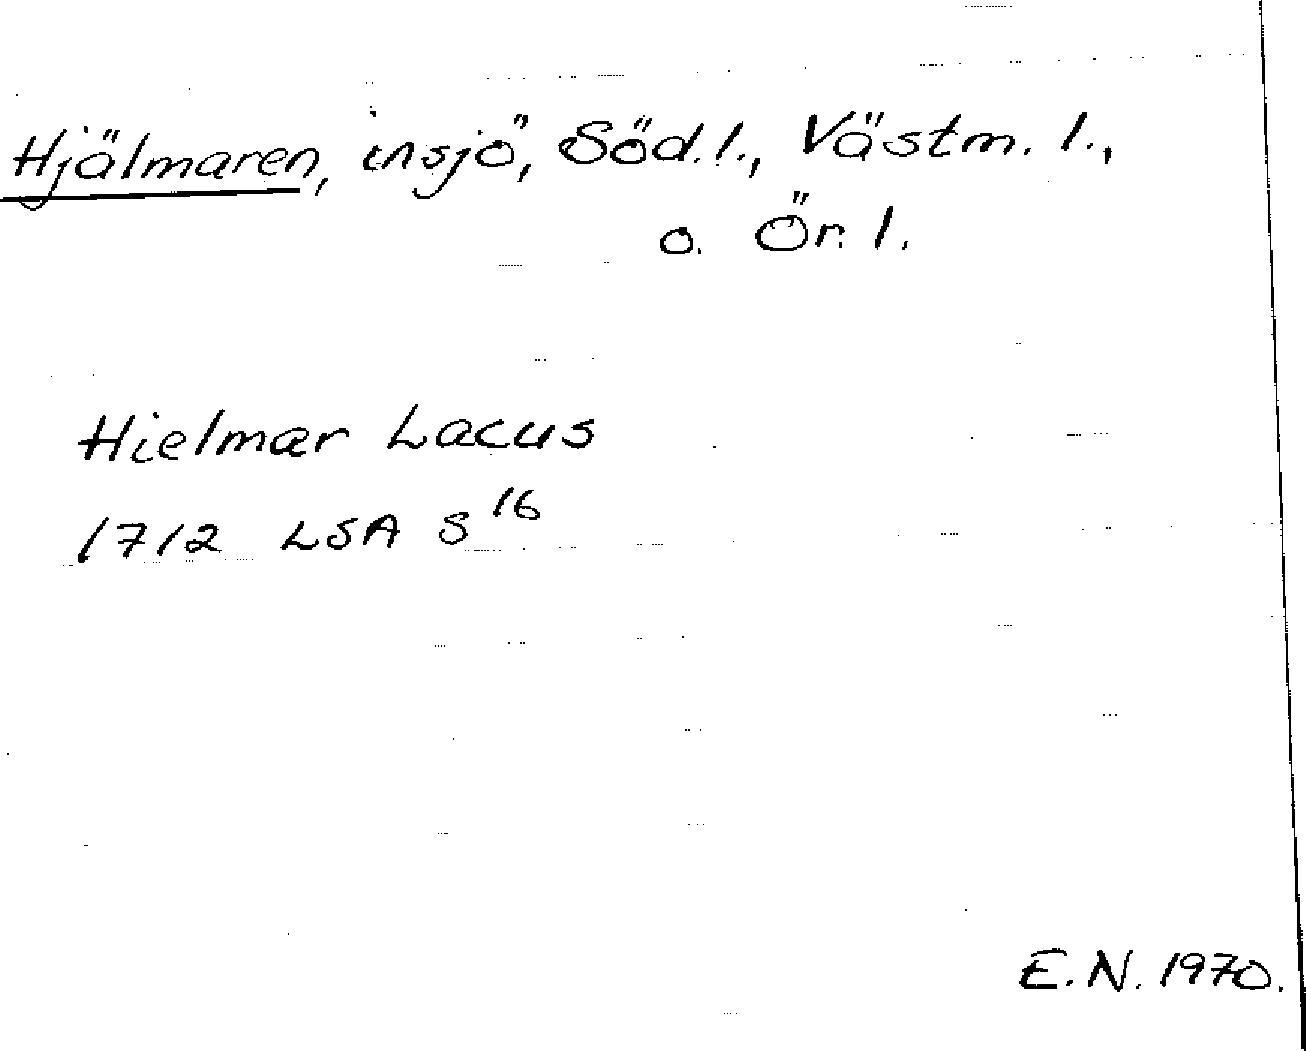 Hjälmaren, insjö, Söd.l., Västm. l.,
o. Ör. l.
Hielmar Lacus
1712 LSA S 16
E.N. 1970.